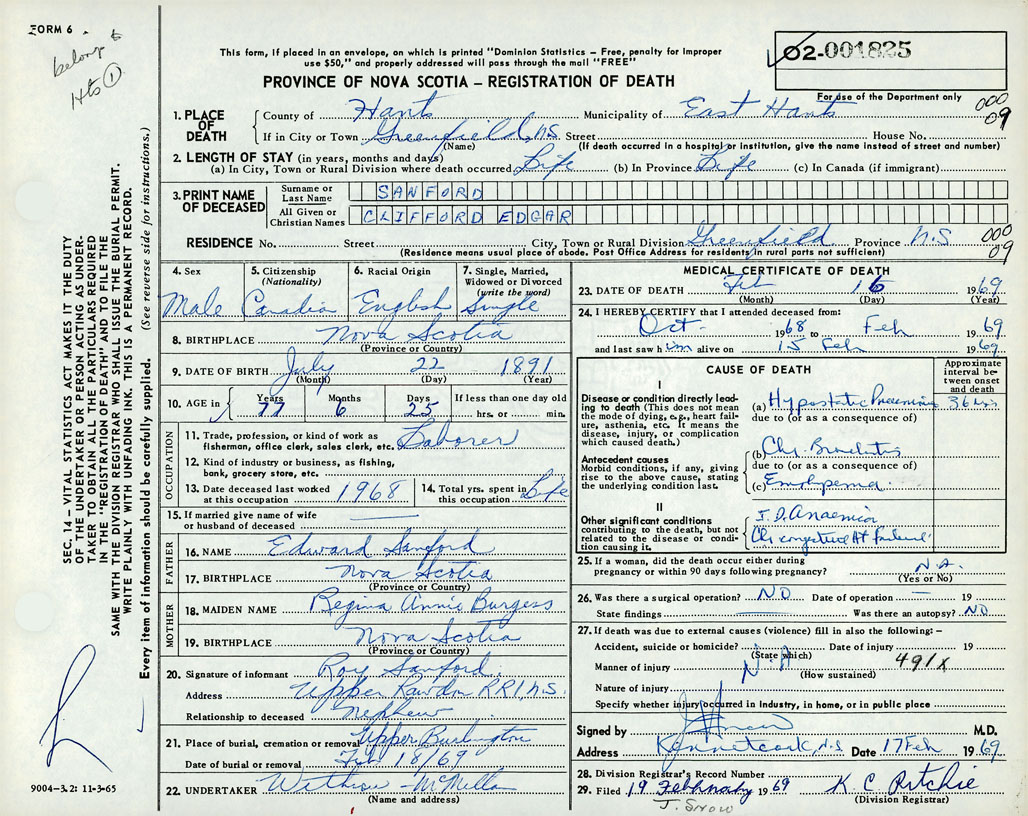 FORM 6
belong to
Hts ①
This form, if placed in an envelope, on which is printed "Dominion Statistics – Free, penalty for improper
use $50," and properly addressed will pass through the mail "FREE"
PROVINCE OF NOVA SCOTIA – REGISTRATION OF DEATH
02-001825
For use of the Department only
000
09
1. PLACE OF DEATH
County of Hants Municipality of East Hants
If in City or Town Greenfield, N.S. Street House No.
(Name) (If death occurred in a hospital or institution, give the name instead of street and number)
2. LENGTH OF STAY (in years, months and days)
(a) In City, Town or Rural Division where death occurred Life (b) In Province Life (c) In Canada (if immigrant)
3. PRINT NAME OF DECEASED
Surname or Last Name SANFORD
All Given or Christian Names CLIFFORD EDGAR
RESIDENCE No. Street City, Town or Rural Division Greenfield Province N.S.
000
09
(Residence means usual place of abode. Post Office Address for residents in rural parts not sufficient)
4. Sex Male
5. Citizenship (Nationality) Canadia
6. Racial Origin English
7. Single, Married, Widowed or Divorced (write the word) Single
8. BIRTHPLACE Nova Scotia
(Province or Country)
9. DATE OF BIRTH July 22 1891
(Month) (Day) (Year)
10. AGE in Years 77 Months 6 Days 25 If less than one day old hrs. or min.
OCCUPATION
11. Trade, profession, or kind of work as fisherman, office clerk, sales clerk, etc. Laborer
12. Kind of industry or business, as fishing, bank, grocery store, etc.
13. Date deceased last worked at this occupation 1968
14. Total yrs. spent in this occupation Life
15. If married give name of wife or husband of deceased
FATHER
16. NAME Edward Sanford
17. BIRTHPLACE Nova Scotia
(Province or Country)
MOTHER
18. MAIDEN NAME Regina Annie Burgess
19. BIRTHPLACE Nova Scotia
(Province or Country)
20. Signature of informant Roy Sanford
Address Upper Rawdon RR1, N.S.
Relationship to deceased Nephew
21. Place of burial, cremation or removal Upper Burlington
Date of burial or removal Feb 18/69
22. UNDERTAKER Withrow – McMillan
(Name and address)
MEDICAL CERTIFICATE OF DEATH
23. DATE OF DEATH Feb 16 1969
(Month) (Day) (Year)
24. I HEREBY CERTIFY that I attended deceased from:
Oct. 1968 to Feb 1969
and last saw him alive on 15 Feb 1969
CAUSE OF DEATH
Approximate interval between onset and death
I
Disease or condition directly leading to death (This does not mean the mode of dying, e.g., heart failure, asthenia, etc. It means the disease, injury, or complication which caused death.)
(a) Hypostatic Pneumonia 36 hrs
due to (or as a consequence of)
Antecedent causes
Morbid conditions, if any, giving rise to the above cause, stating the underlying condition last.
(b) Chr. Bronchitis
due to (or as a consequence of)
(c) Emphysema
II
Other significant conditions
contributing to the death, but not related to the disease or condition causing it.
I.D. Anaemia
Chr congestive Ht failure
25. If a woman, did the death occur either during pregnancy or within 90 days following pregnancy? N.A.
(Yes or No)
26. Was there a surgical operation? NO Date of operation — 19
State findings Was there an autopsy? NO
27. If death was due to external causes (violence) fill in also the following: –
Accident, suicide or homicide? Date of injury 19
(State which)
N.A 491X
Manner of injury
(How sustained)
Nature of injury
Specify whether injury occurred in industry, in home, or in public place
Signed by J Snow M.D.
Address Kennetcook, N.S. Date 17 Feb 1969
28. Division Registrar's Record Number
29. Filed 19 February 1969 K C Ritchie
(Division Registrar)
J. Snow
SEC. 14 – VITAL STATISTICS ACT MAKES IT THE DUTY
OF THE UNDERTAKER OR PERSON ACTING AS UNDER-
TAKER TO OBTAIN ALL THE PARTICULARS REQUIRED
IN THE "REGISTRATION OF DEATH" AND TO FILE THE
SAME WITH THE DIVISION REGISTRAR WHO SHALL ISSUE THE BURIAL PERMIT.
WRITE PLAINLY WITH UNFADING INK. THIS IS A PERMANENT RECORD.
Every item of information should be carefully supplied. (See reverse side for instructions.)
9004-3.2: 11-3-65